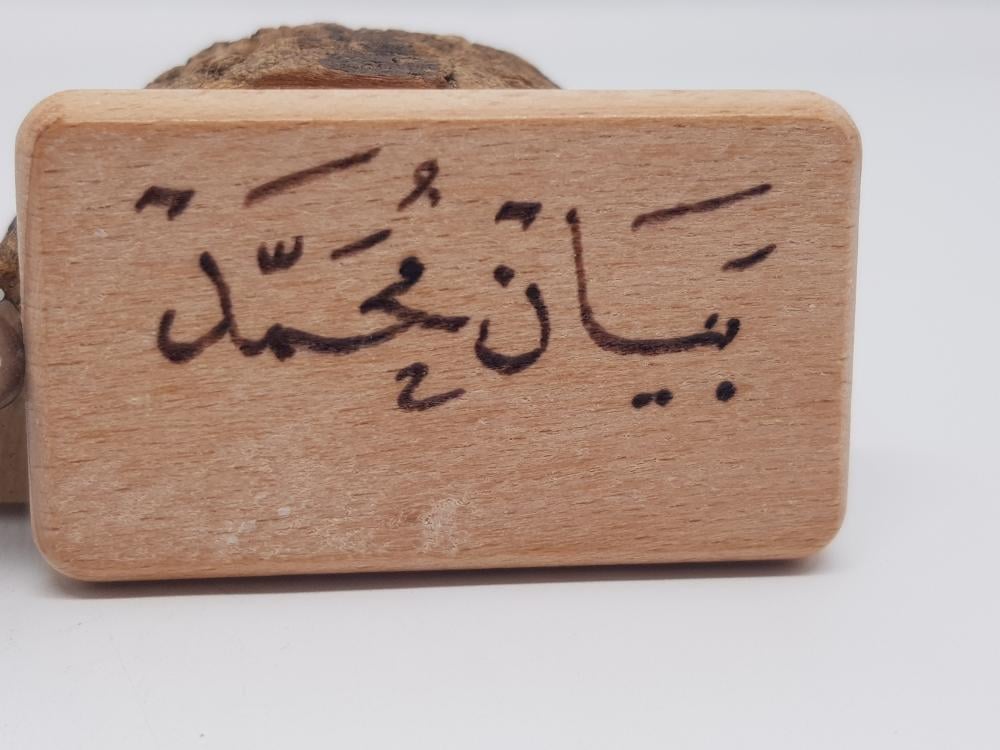 بَيَان مُحَمَّد